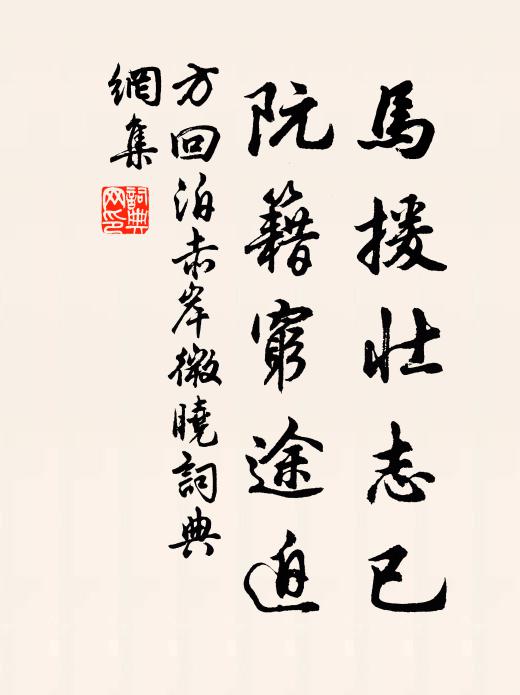 馬援壮志已
阮籍窮途迫
方回泊赤岸微曉詞典
網集
詞典網印